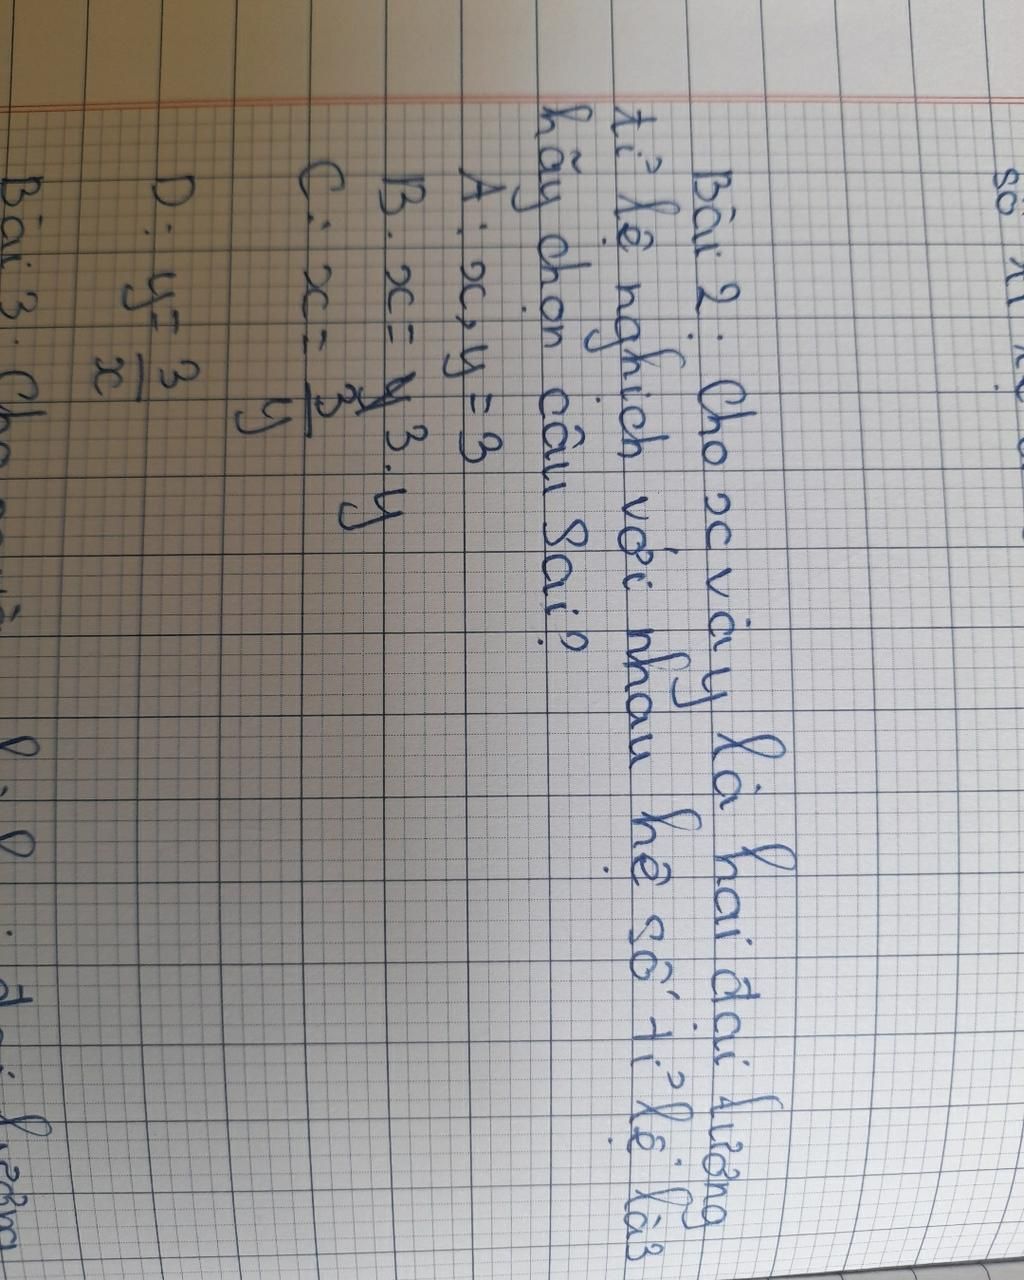 số
Bài 2: Cho x và y là hai đại lượng
tỉ lệ nghịch với nhau hệ số tỉ lệ là 3
hãy chọn câu sai?
A: x, y = 3
B. x = 3. y
C: x = 3/y
D: y = 3/x
Bài 3. Cho